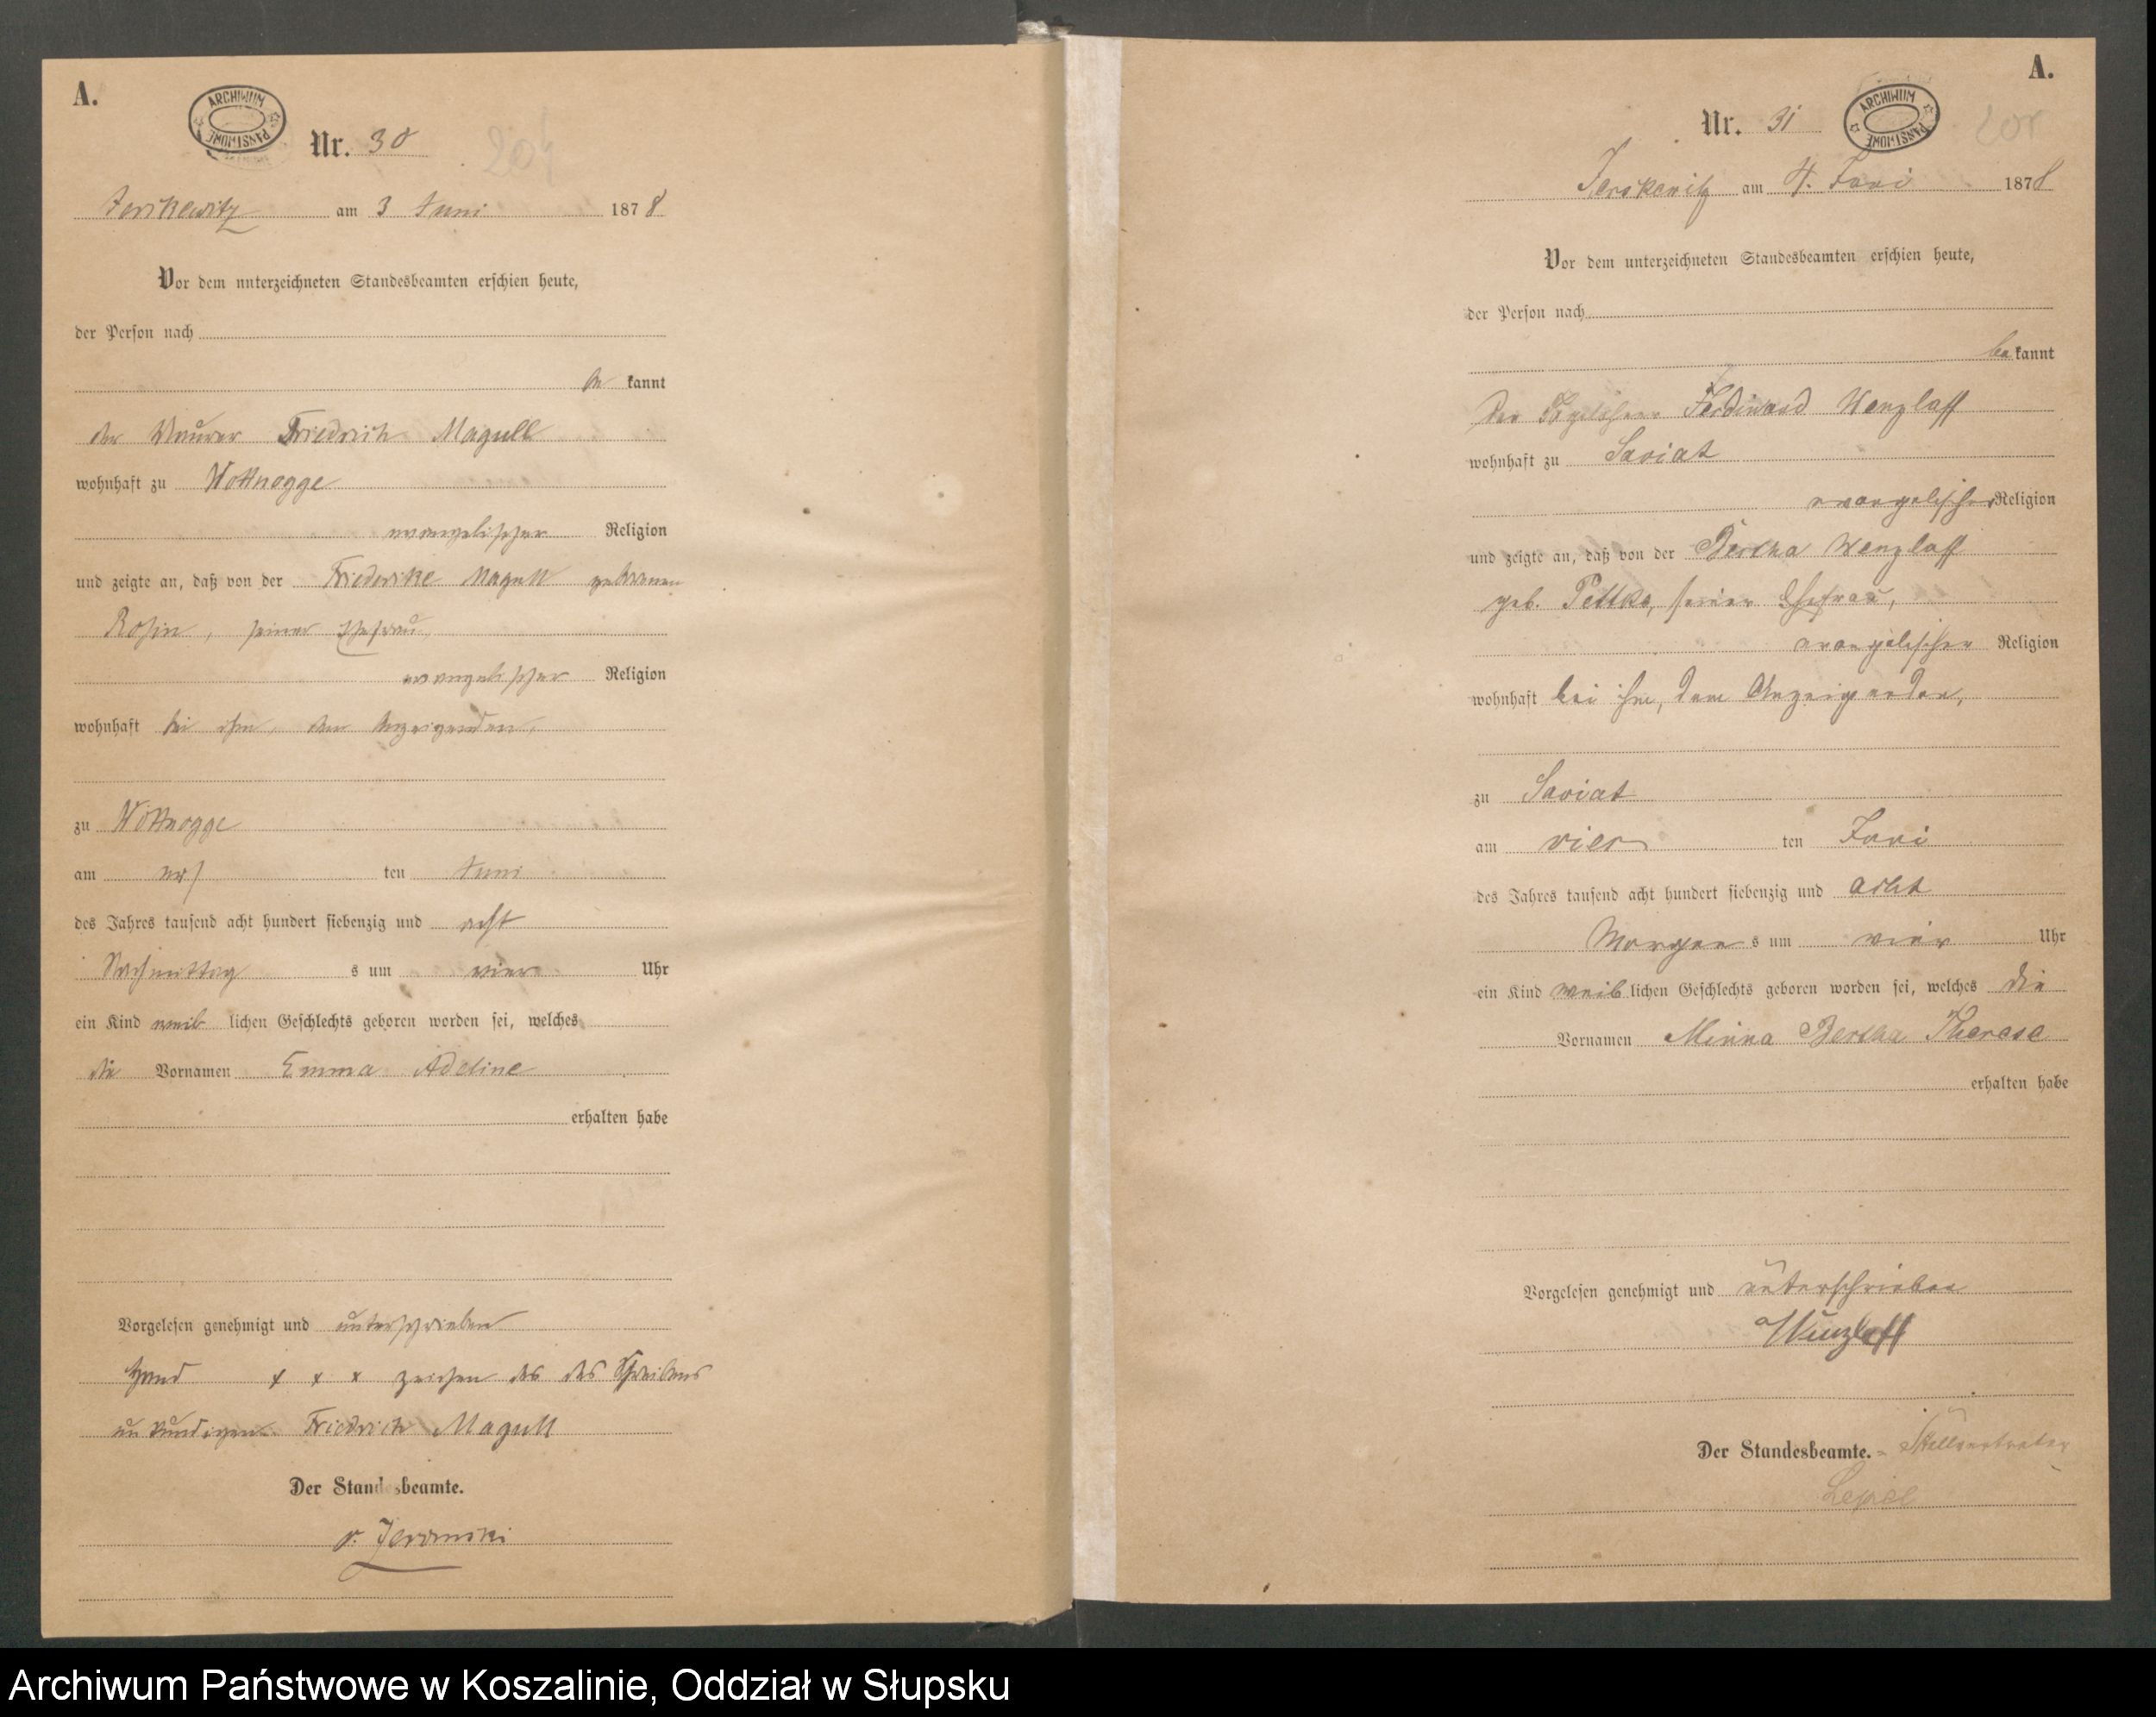 A.
ARCHIWUM PAŃSTWOWE
Nr. 30
204
Jerskewitz am 3 Juni 1878
Vor dem unterzeichneten Standesbeamten erschien heute,
der Person nach
be kannt
der Maurer Friedrich Magull
wohnhaft zu Wottnogge
evangelischer Religion
und zeigte an, daß von der Friederike Magull geborenen
Rosin, seiner Ehefrau,
evangelischer Religion
wohnhaft bei ihm, dem Anzeigenden,
zu Wottnogge
am ers ten Juni
des Jahres tausend acht hundert siebenzig und acht
Nachmittag s um vier Uhr
ein Kind weib lichen Geschlechts geboren worden sei, welches
die Vornamen Emma Adeline
erhalten habe
Vorgelesen genehmigt und unterschrieben
Hand x x x zeichen des des Schreibens
unkundigen Friedrich Magull
Der Standesbeamte.
A.
Nr. 31
ARCHIWUM PAŃSTWOWE
205
Jerskewitz am 4. Juni 1878
Vor dem unterzeichneten Standesbeamten erschien heute,
der Person nach
be kannt
Der Tagelöhner Ferdinand Wenzlaff
wohnhaft zu Saviat
evangelischer Religion
und zeigte an, daß von der Bertha Wenzlaff
geb. Pettke, seiner Ehefrau,
evangelischer Religion
wohnhaft bei ihm, dem Anzeigenden,
zu Saviat
am vier ten Juni
des Jahres tausend acht hundert siebenzig und acht
Morgen s um vier Uhr
ein Kind weib lichen Geschlechts geboren worden sei, welches die
Vornamen Minna Bertha Therese
erhalten habe
Vorgelesen genehmigt und unterschrieben
Wenzlaff
Der Standesbeamte. Stellvertreter
Archiwum Państwowe w Koszalinie, Oddział w Słupsku